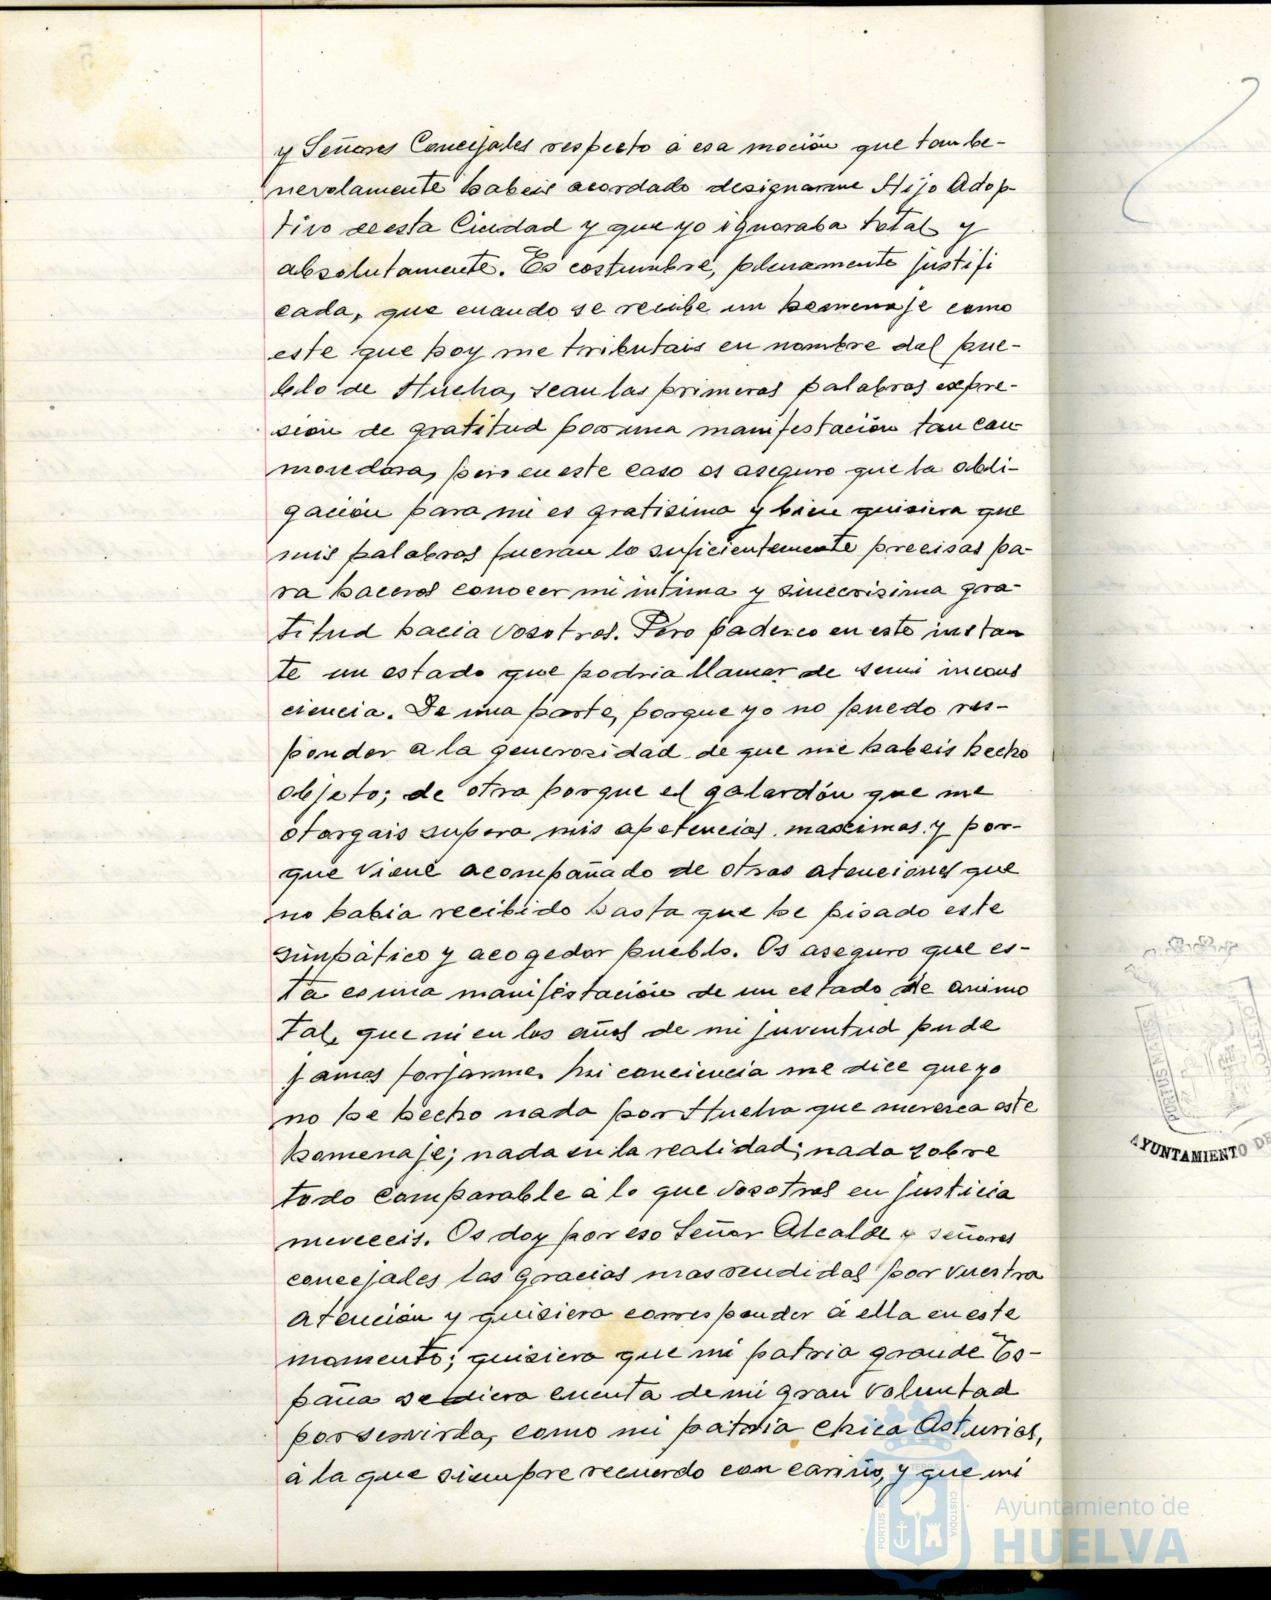 y Señores Concejales respecto á esa moción que tan be-
nevolamente habeis acordado designarme Hijo Adop-
tivo de esta Ciudad y que yo ignoraba total y
absolutamente. Es costumbre, plenamente justifi
cada, que cuando se recibe un homenaje como
este que hoy me tributais en nombre del pue-
blo de Huelva, sean las primeras palabras expre-
sión de gratitud por una manifestación tan con-
movedora, pero en este caso os aseguro que la obli-
gación para mi es gratisima y bien quisiera que
mis palabras fueran lo suficientemente precisas pa-
ra haceros conocer mi intima y sincerisima gra-
titud hacia vosotros. Pero padezco en este instan
te un estado que podria llamar de semi incons
ciencia. De una parte, porque yo no puedo res-
ponder a la generosidad de que me habeis hecho
objeto; de otra porque el galardón que me
otorgais supera mis apetencias maximas y por-
que viene acompañado de otras atenciones que
no habia recibido hasta que he pisado este
simpático y acogedor pueblo. Os aseguro que es-
ta es una manifestación de un estado de animo
tal, que ni en los años de mi juventud pude
jamas forjarme. Mi conciencia me dice que yo
no he hecho nada por Huelva que merezca este
homenaje; nada en la realidad; nada sobre
todo comparable á lo que vosotros en justicia
mereceis. Os doy por eso Señor Alcalde y señores
concejales las gracias mas rendidas por vuestra
atención y quisiera corresponder á ella en este
momento; quisiera que mi patria grande Es-
paña se diera cuenta de mi gran voluntad
por servirla, como mi patria chica Asturias,
á la que siempre recuerdo con cariño, y que mi
AYUNTAMIENTO DE
PORTUS MARIS
PORTUS
CUSTODIA
Ayuntamiento de
HUELVA